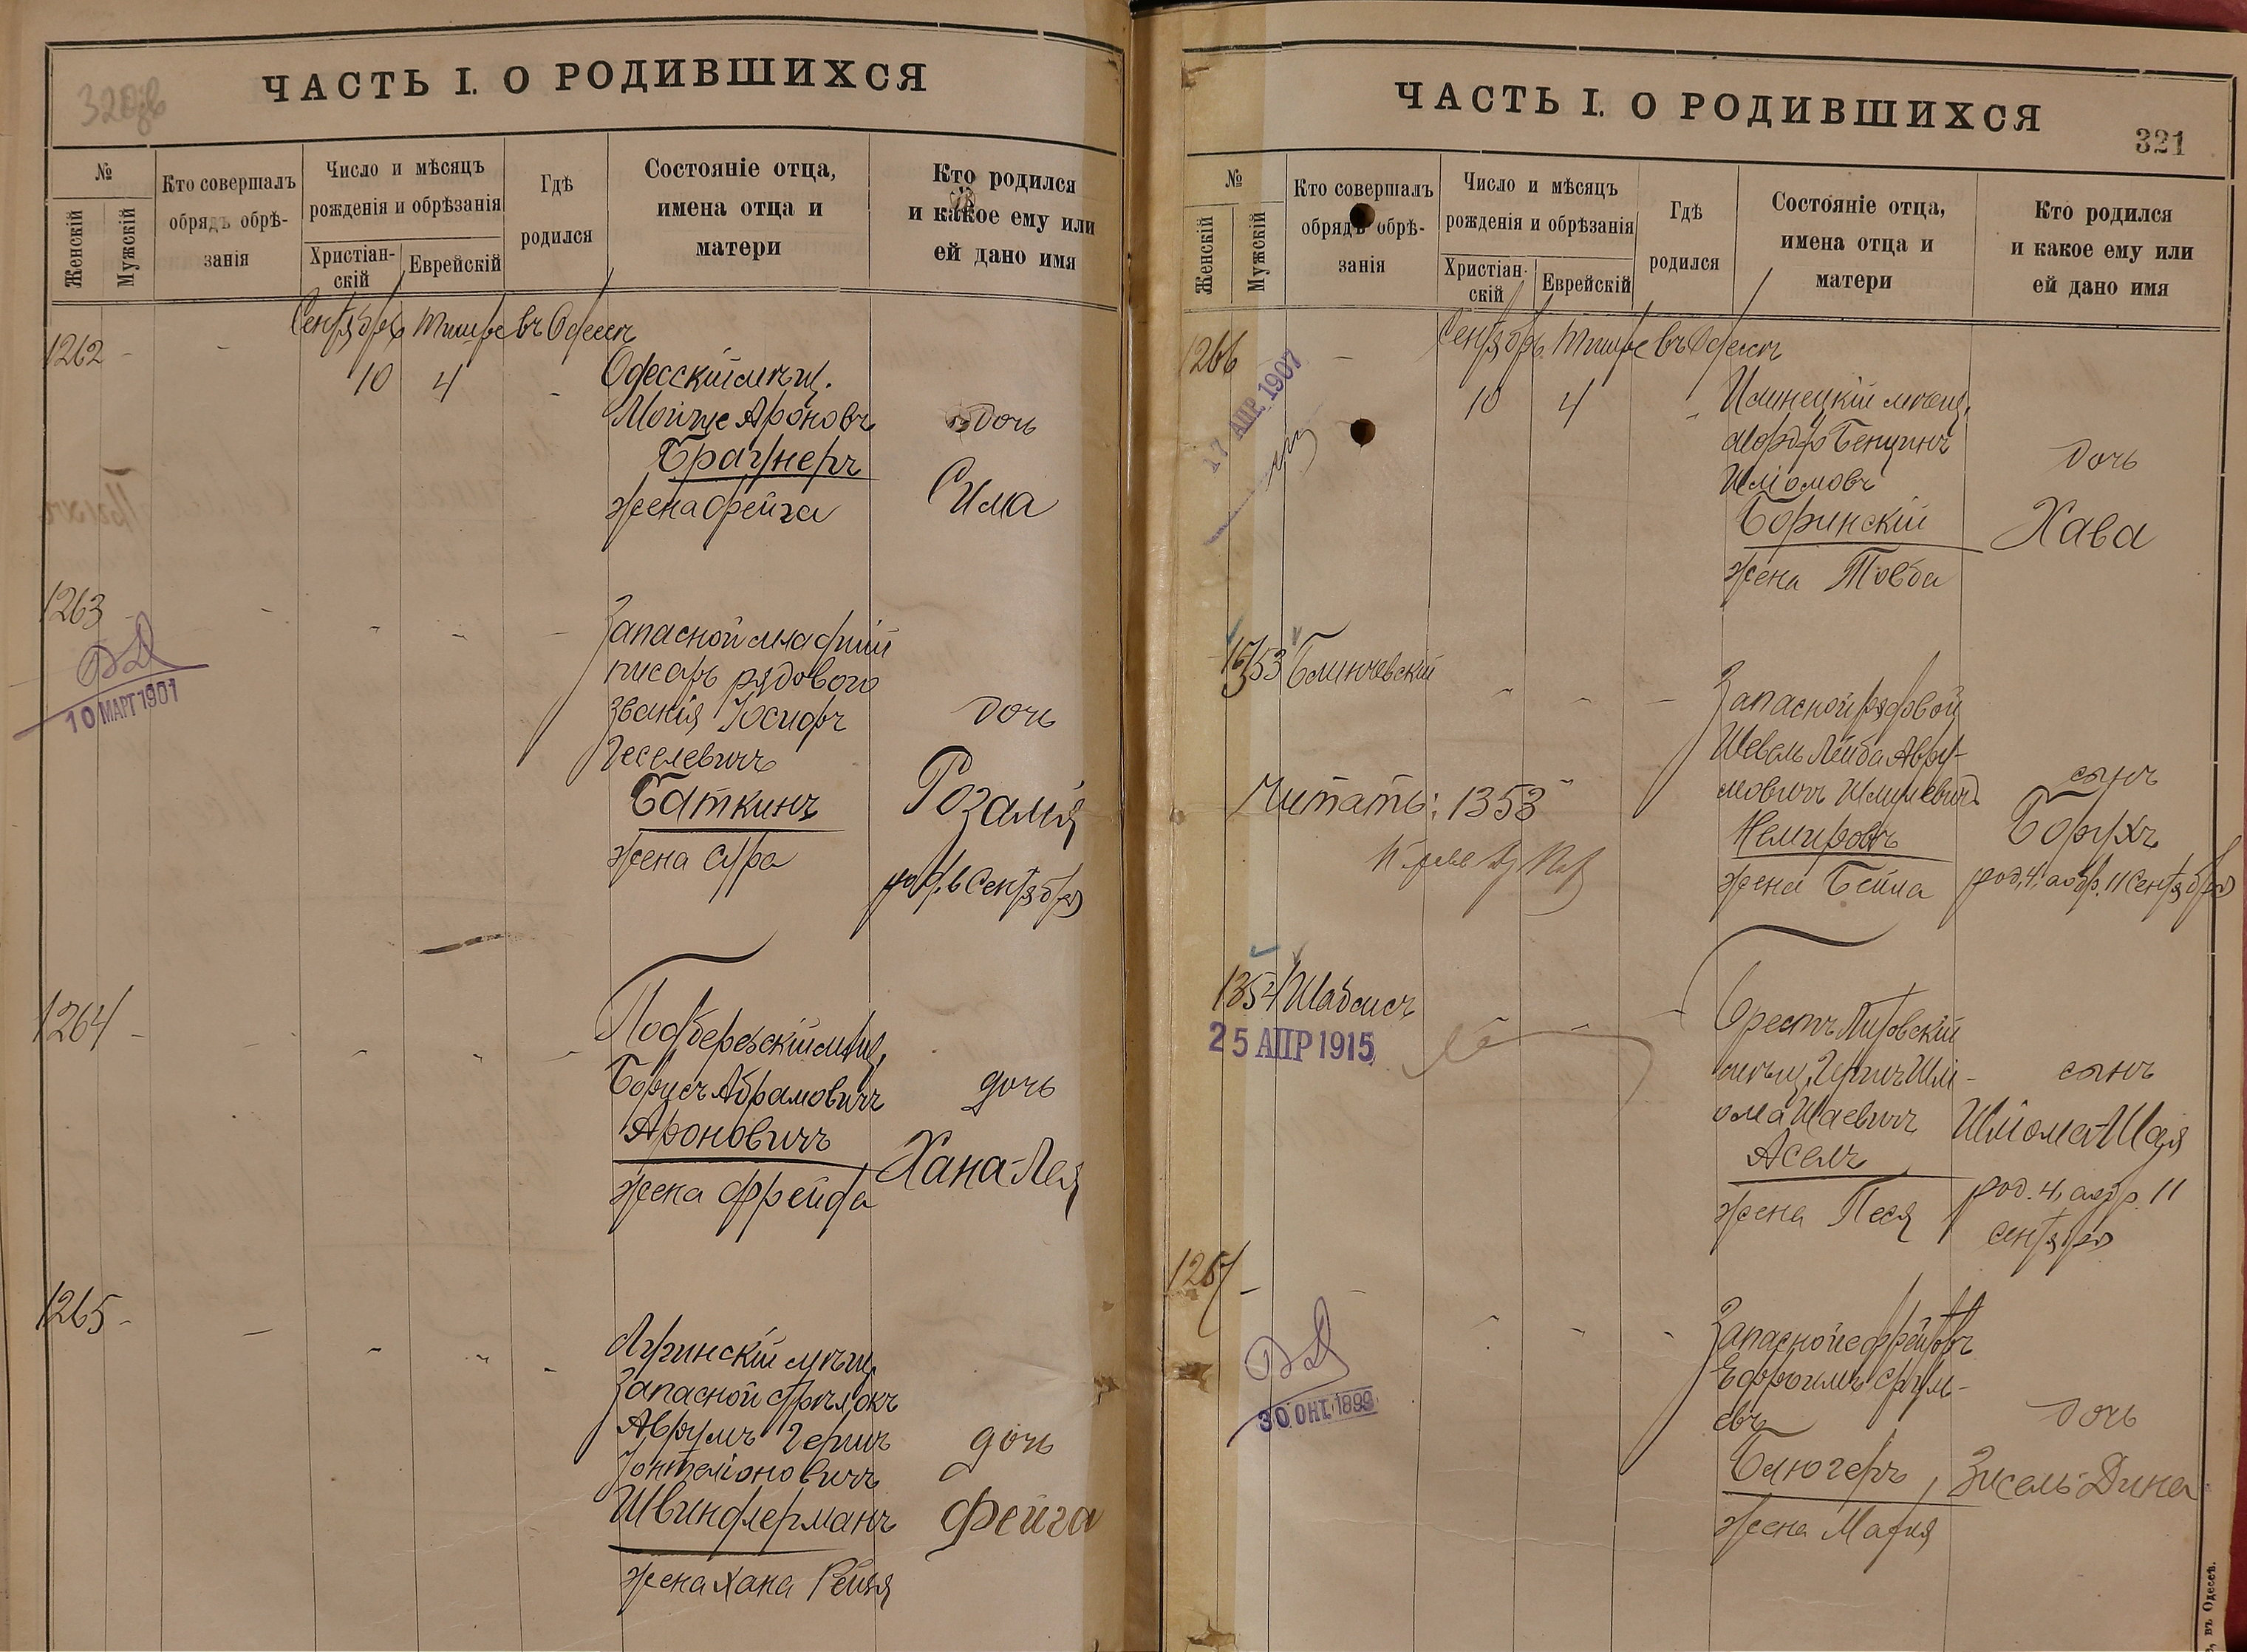 ЧАСТЬ I. О РОДИВШИХСЯ
№
Женскій
Мужскій
Кто совершалъ
обрядъ обрѣ-
занія
Число и мѣсяцъ
рожденія и обрѣзанія
Христіан-
скій
Еврейскій
Гдѣ
родился
Состояніе отца,
имена отца и
матери
Кто родился
и какое ему или
ей дано имя
Сентябрь Тишре въ Одессѣ
1262 - - 10 4 -
Одесскій мѣщ.
Мойше Ароновъ
Браунеръ
жена Фейга
дочь
Сима
1263
10 МАРТ 1901
Запасной младшій
писарь рядового
званія Іосифъ
Геселевичъ
Баткинъ
жена Сура
дочь
Розалія
род. 6 Сентября
1264 -
Подберезскій мѣщ.
Борисъ Абрамовичъ
Ароновичъ
жена Фрейда
дочь
Хана-Лея
1265 -
Лугинскій мѣщ.
Запасной стрѣлокъ
Аврумъ Герщъ
Швиндлерманъ
жена Хана Рейзя
дочь
Фейга
ЧАСТЬ I. О РОДИВШИХСЯ
321
№
Женскій
Мужскій
Кто совершалъ
обрядъ обрѣ-
занія
Число и мѣсяцъ
рожденія и обрѣзанія
Христіан-
скій
Еврейскій
Гдѣ
родился
Состояніе отца,
имена отца и
матери
Кто родился
и какое ему или
ей дано имя
Сентябрь Тишре въ Одессѣ
1266 - 10 4 -
17 АПР. 1907
Илинецкій мѣщ.
Мордко Бенционъ
Шліомовъ
Боринскій
жена Товба
дочь
Хава
1353 Блинчевскій
Читать: 1353
Запасной рядовой
Шевель Лейба Авру-
мовичъ Шмилевичъ
Немировъ
жена Бейла
сынъ
Борухъ
род. 4, а обр. 11 Сентября
1354 Шабсисъ
25 АПР 1915
Брестъ Литовскій
мѣщ. Гершъ Шлі-
ома Шаевичъ
Асель
жена Песя
сынъ
Шліома-Шая
род. 4, а обр. 11
сентября
1267 -
30 ОКТ. 1899
Запасной ефрейторъ
Ефроимъ Срул-
евъ
Блюгеръ,
жена Марія
дочь
Зисель-Дина
въ Одессѣ.